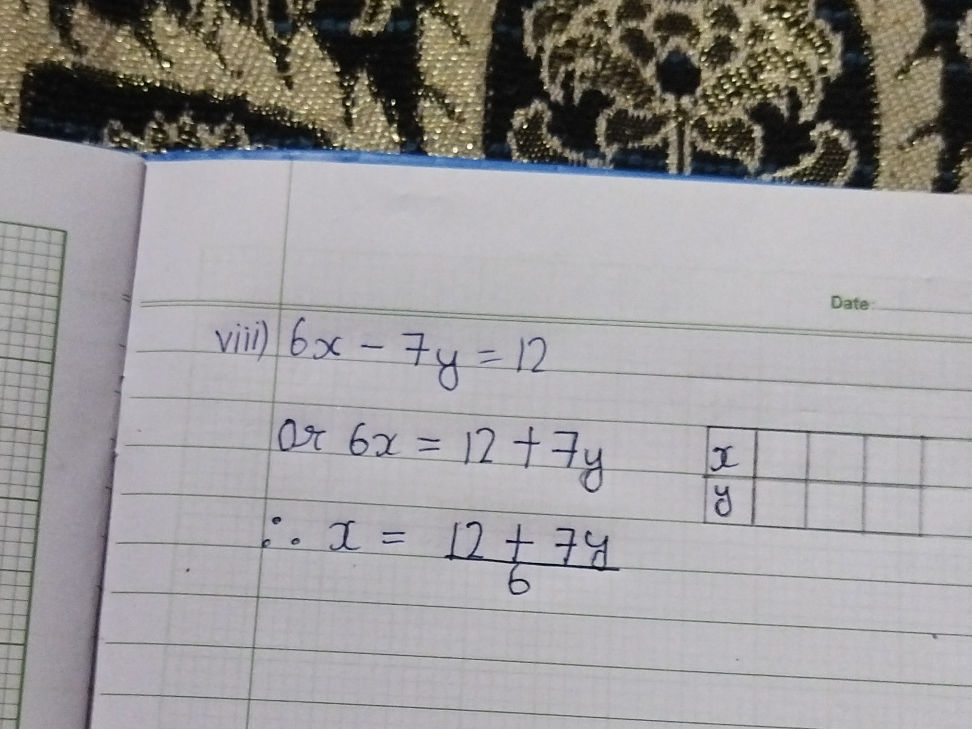 Date:
viii) 6x - 7y = 12
Or 6x = 12 + 7y
x
y
∴ x = 12 + 7y
6